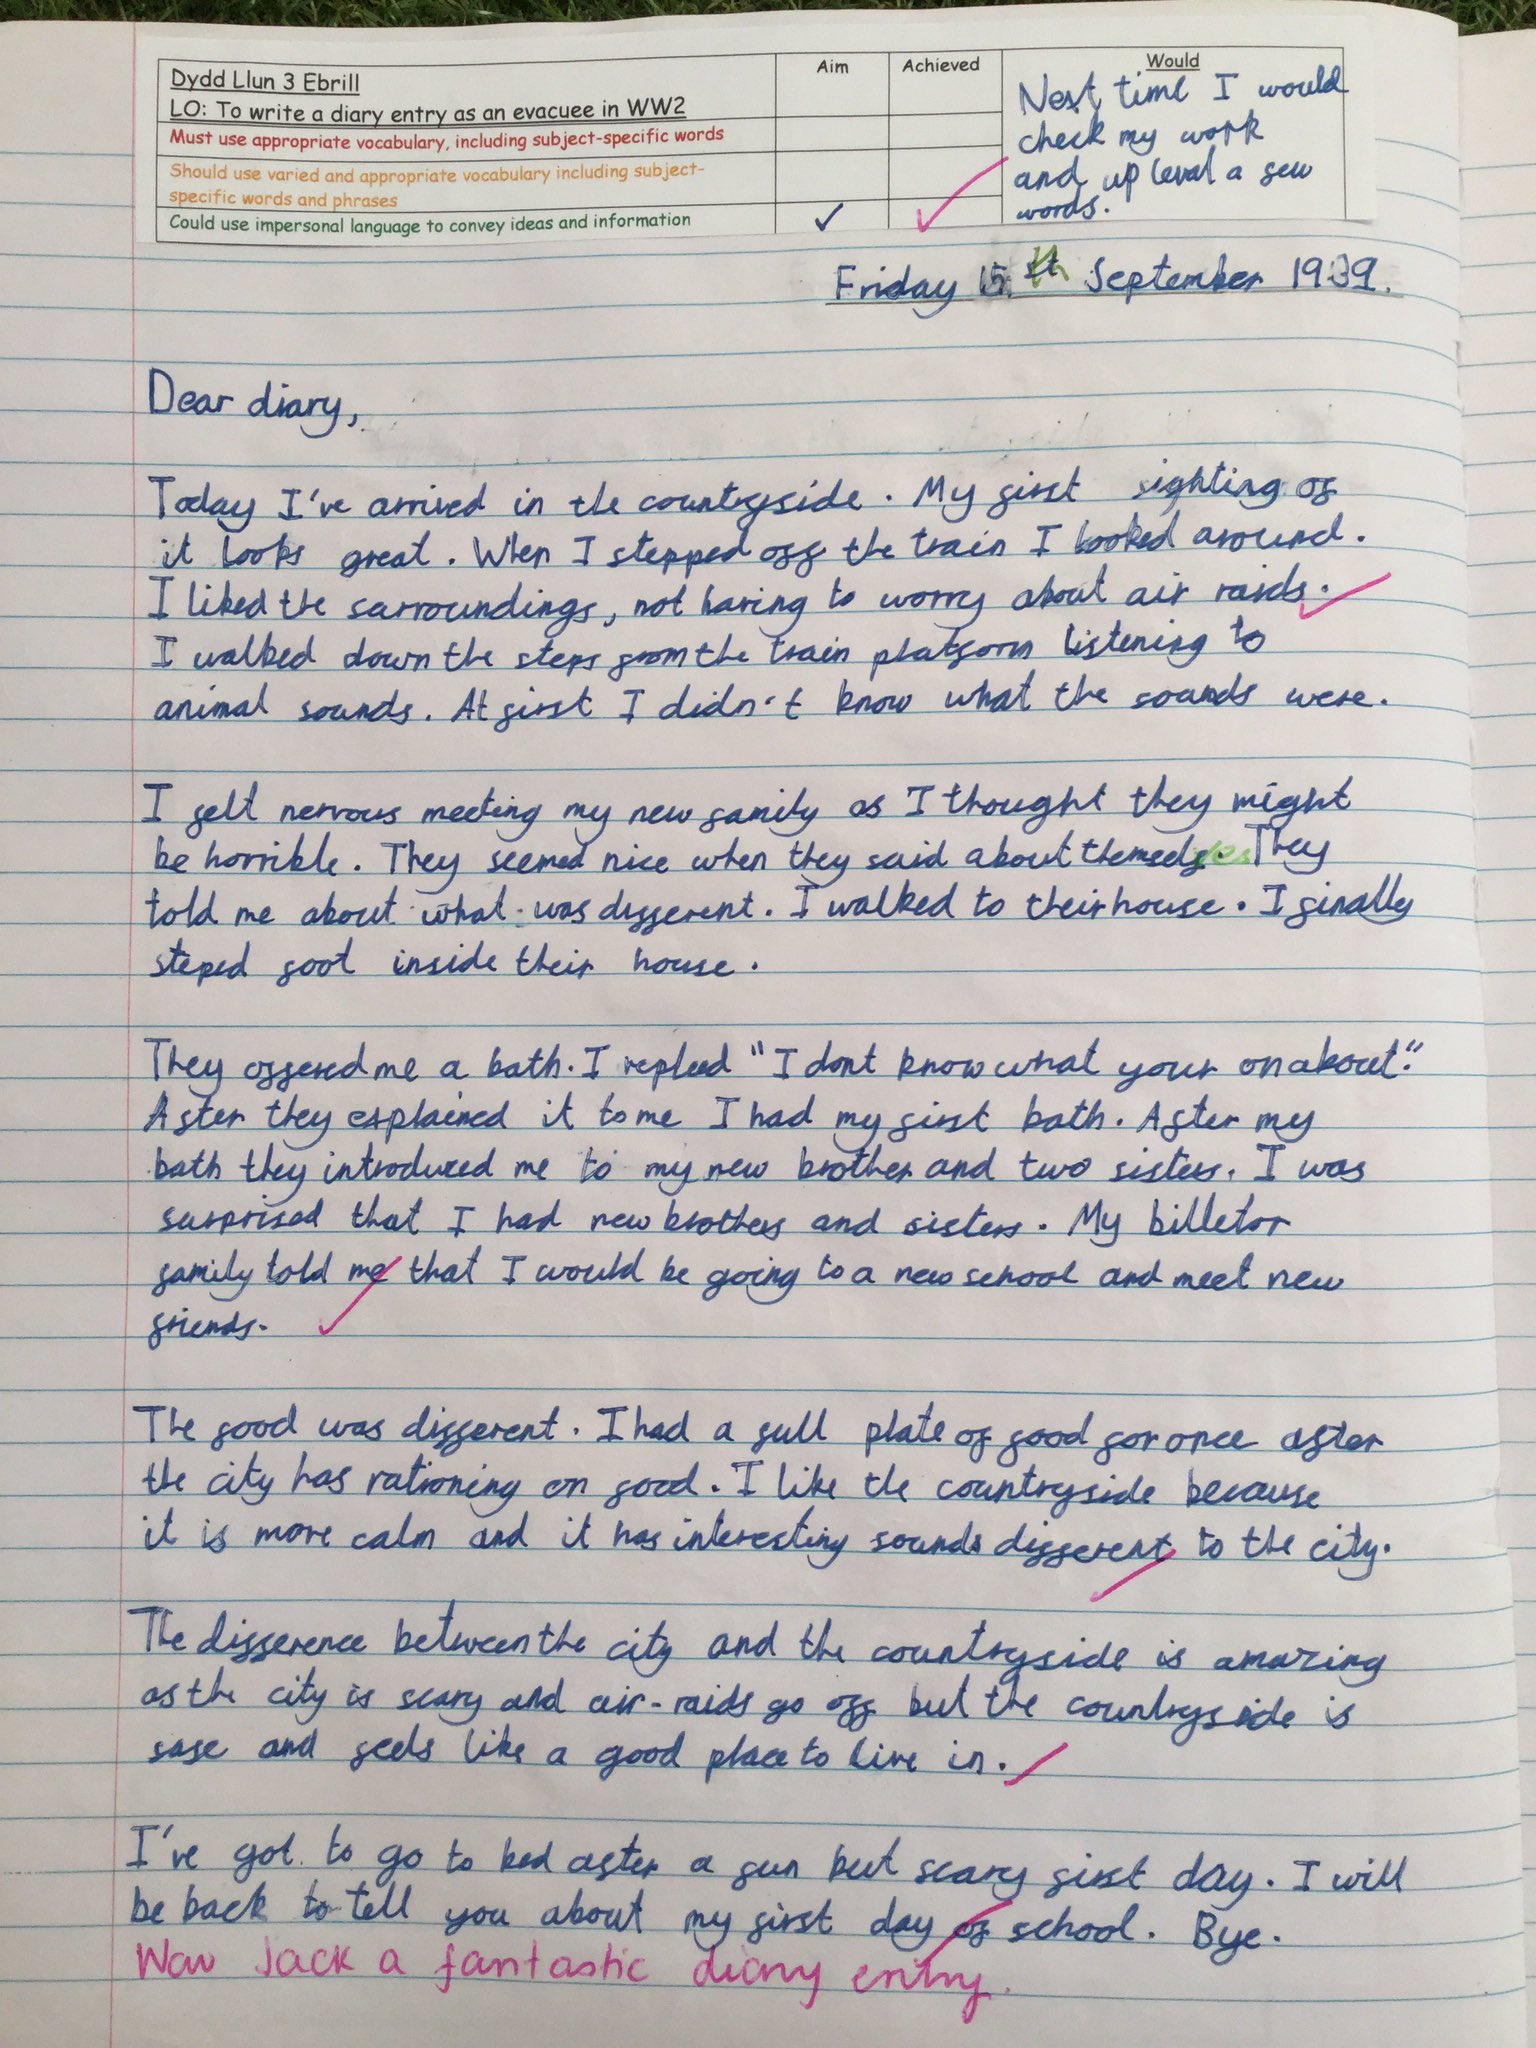 Dydd Llun 3 Ebrill
LO: To write a diary entry as an evacuee in WW2
Aim
Achieved
Must use appropriate vocabulary, including subject-specific words
Should use varied and appropriate vocabulary including subject-
specific words and phrases
Could use impersonal language to convey ideas and information
Would
Next time I would
check my work
and up leval a few
words.
Friday 15th September 1939.
Dear diary,
Today I've arrived in the countryside. My first sighting of
it looks great. When I stepped off the train I looked around.
I liked the sarroundings, not having to worry about air raids.
I walked down the steps from the train platform listening to
animal sounds. At first I didn't know what the sounds were.
I felt nervous meeting my new family as I thought they might
be horrible. They seemed nice when they said about themselves. They
told me about what was different. I walked to their house. I finally
steped foot inside their house.
They offered me a bath. I replied "I dont know what your on about."
After they explained it to me I had my first bath. After my
bath they introduced me to my new brother and two sisters. I was
surprised that I had new brothers and sisters. My billetor
family told me that I would be going to a new school and meet new
friends.
The food was different. I had a full plate of food for once after
the city has rationing on food. I like the countryside because
it is more calm and it has interesting sounds different to the city.
The difference between the city and the countryside is amazing
as the city is scary and air-raids go off but the countryside is
safe and feels like a good place to live in.
I've got to go to bed after a fun but scary first day. I will
be back to tell you about my first day of school. Bye.
Wow Jack a fantastic diary entry.